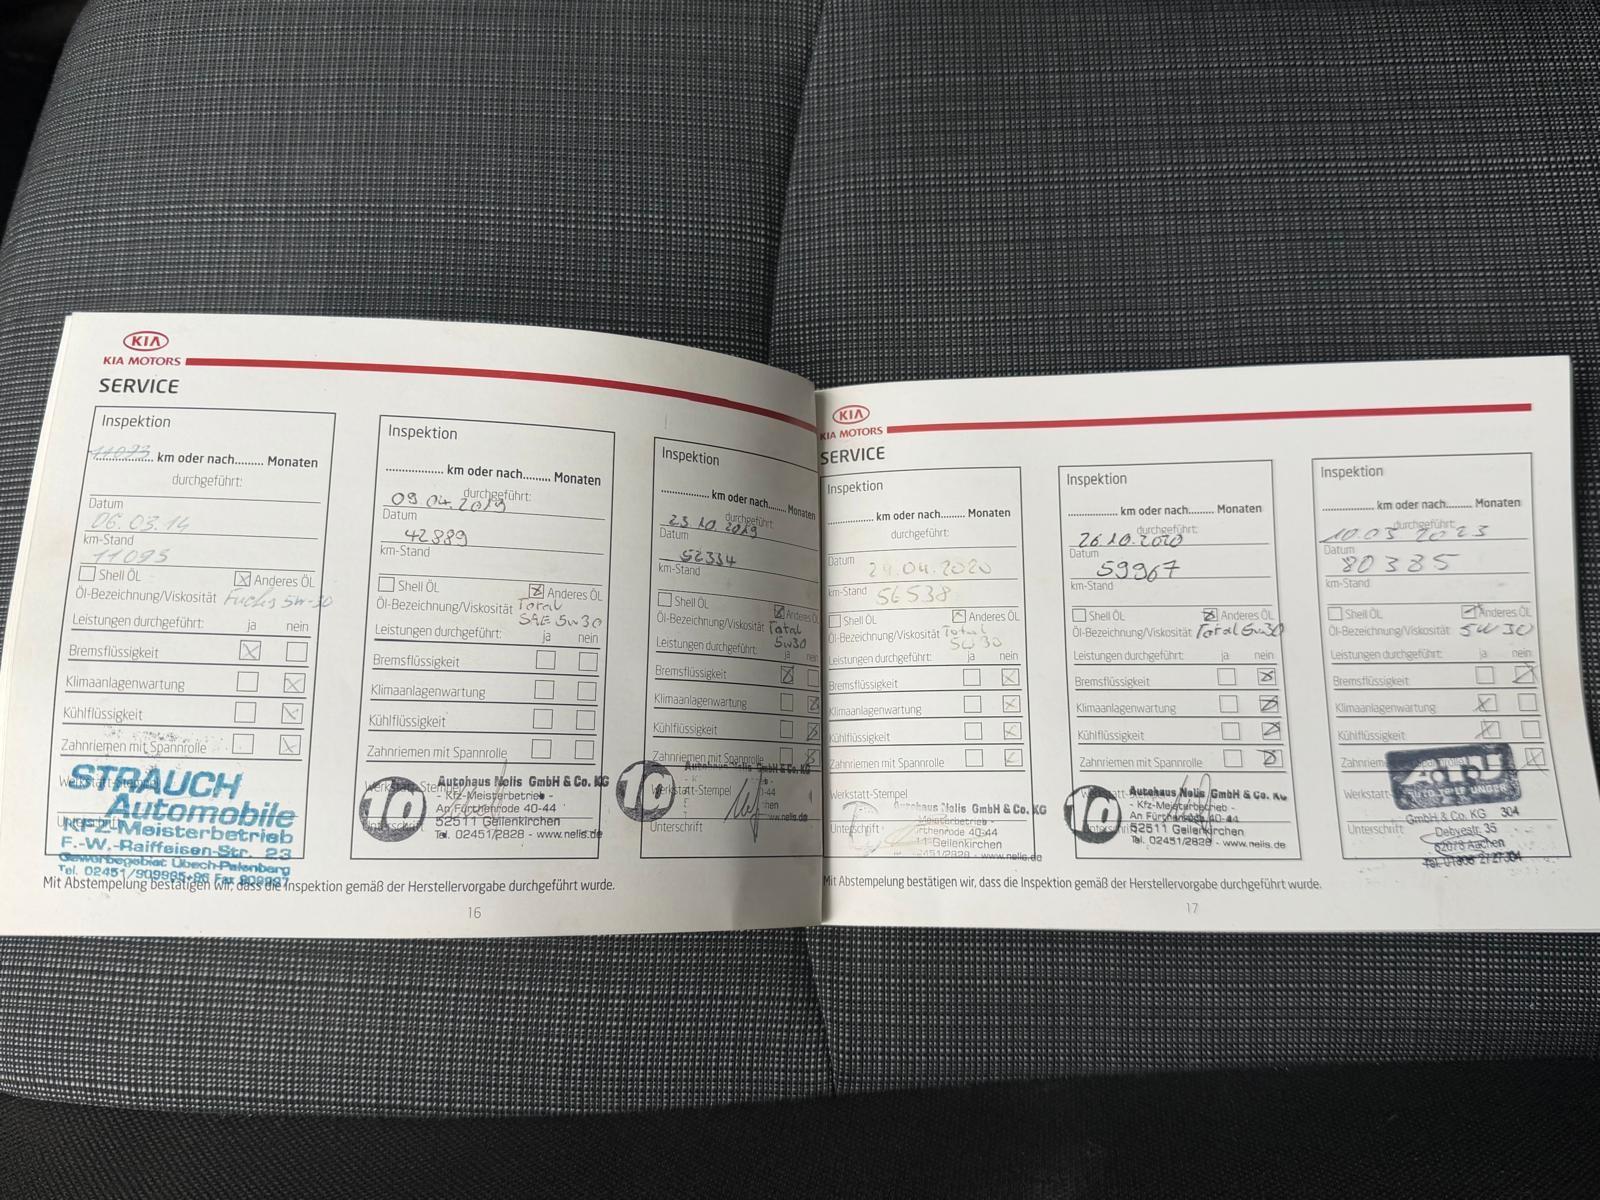 KIA
KIA MOTORS
SERVICE
Inspektion
11093 km oder nach......... Monaten
durchgeführt:
Datum
06.03.14
km-Stand
11093
Shell ÖL Anderes ÖL
Öl-Bezeichnung/Viskosität Fuchs 5W-30
Leistungen durchgeführt: ja nein
Bremsflüssigkeit
Klimaanlagenwartung
Kühlflüssigkeit
Zahnriemen mit Spannrolle
STRAUCH
Automobile
KFZ-Meisterbetrieb
F.-W.-Raiffeisen-Str. 23
Gewerbegebiet Übach-Palenberg
Inspektion
................... km oder nach......... Monaten
durchgeführt:
09.04.2019
Datum
42889
km-Stand
Shell ÖL Anderes ÖL
Öl-Bezeichnung/Viskosität Total
SAE 5W30
Leistungen durchgeführt: ja nein
Bremsflüssigkeit
Klimaanlagenwartung
Kühlflüssigkeit
Zahnriemen mit Spannrolle
Werkstatt-Stempel
10
Autohaus Nelis GmbH & Co. KG
- Kfz-Meisterbetrieb -
An Fürthenrode 40-44
52511 Geilenkirchen
Tel. 02451/2828 - www.nelis.de
Inspektion
................... km oder nach......... Monaten
durchgeführt:
23.10.2019
Datum
52334
km-Stand
Shell ÖL Anderes ÖL
Öl-Bezeichnung/Viskosität Total
5W30
Leistungen durchgeführt: ja nein
Bremsflüssigkeit
Klimaanlagenwartung
Kühlflüssigkeit
Zahnriemen mit Spannrolle
10
Autohaus Nelis GmbH & Co. KG
Werkstatt-Stempel
Unterschrift
www.nelis.de
Mit Abstempelung bestätigen wir, dass die Inspektion gemäß der Herstellervorgabe durchgeführt wurde.
16
KIA
KIA MOTORS
SERVICE
Inspektion
................... km oder nach......... Monaten
durchgeführt:
Datum
29.04.2020
km-Stand 56538
Shell ÖL Anderes ÖL
Öl-Bezeichnung/Viskosität Total
5W30
Leistungen durchgeführt: ja nein
Bremsflüssigkeit
Klimaanlagenwartung
Kühlflüssigkeit
Zahnriemen mit Spannrolle
Werkstatt-Stempel
Autohaus Nelis GmbH & Co. KG
Unterschrift
Inspektion
................... km oder nach......... Monaten
durchgeführt:
26.10.2020
Datum
59967
km-Stand
Shell ÖL Anderes ÖL
Öl-Bezeichnung/Viskosität Total 5W30
Leistungen durchgeführt: ja nein
Bremsflüssigkeit
Klimaanlagenwartung
Kühlflüssigkeit
Zahnriemen mit Spannrolle
10
Autohaus Nelis GmbH & Co. KG
- Kfz-Meisterbetrieb -
An Fürthenrode 40-44
52511 Geilenkirchen
Tel. 02451/2828 - www.nelis.de
Inspektion
................... km oder nach......... Monaten
durchgeführt:
10.03.2023
Datum
80385
km-Stand
Shell ÖL Anderes ÖL
Öl-Bezeichnung/Viskosität 5W30
Leistungen durchgeführt: ja nein
Bremsflüssigkeit
Klimaanlagenwartung
Kühlflüssigkeit
GmbH & Co. KG 304
Unterschrift
Debyestr. 35
52078 Aachen
Mit Abstempelung bestätigen wir, dass die Inspektion gemäß der Herstellervorgabe durchgeführt wurde.
17